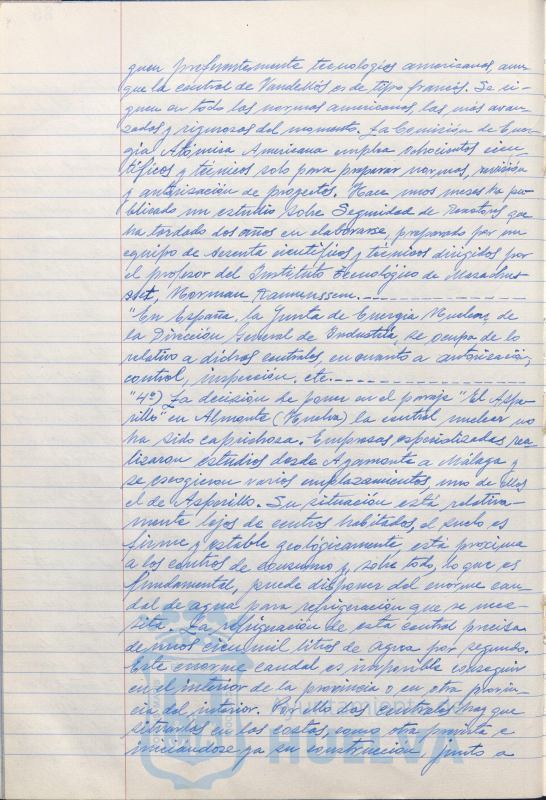 guen preferentemente tecnologías americanas, aun-
que la central de Vandellós es de tipo francés. Se si-
guen en todo las normas americanas, las más avan-
zadas y rigurosas del momento. La Comisión de Ener-
gía Atómica Americana emplea ochocientos cien-
tíficos y técnicos solo para preparar normas, revisión
y autorización de proyectos. Hace unos meses ha pu-
blicado un estudio sobre Seguridad de Reactores que
ha tardado dos años en elaborarse, preparado por un
equipo de sesenta científicos y técnicos dirigidos por
el profesor del Instituto Tecnológico de Masachus
set, Norman Rasmussem.
"En España, la Junta de Energía Nuclear, de
la Dirección General de Industria, se ocupa de lo
relativo a dichas centrales, en cuanto a autorización,
control, inspección, etc.
"4º) La decisión de poner en el paraje "El Aspe-
rillo" en Almonte (Huelva) la central nuclear no
ha sido caprichosa. Empresas especializadas rea-
lizaron estudios desde Ayamonte a Málaga y
se escogieron varios emplazamientos uno de ellos
el de Asperillo. Su situación está relativa-
mente lejos de centros habitados, el suelo es
firme y estable geológicamente, está próxima
a los centros de consumo y, sobre todo, lo que es
fundamental, puede disponer del enorme cau-
dal de agua para refrigeración que se nece-
sita. La refrigeración de esta central precisa
de unos cien mil litros de agua por segundo.
Este enorme caudal es imposible conseguir
en el interior de la provincia o en otra provin-
cia del interior. Por ello las centrales hay que
situarlas en las costas, como otra prevista e
iniciándose ya su construcción junto a
Ayuntamiento de
HUELVA